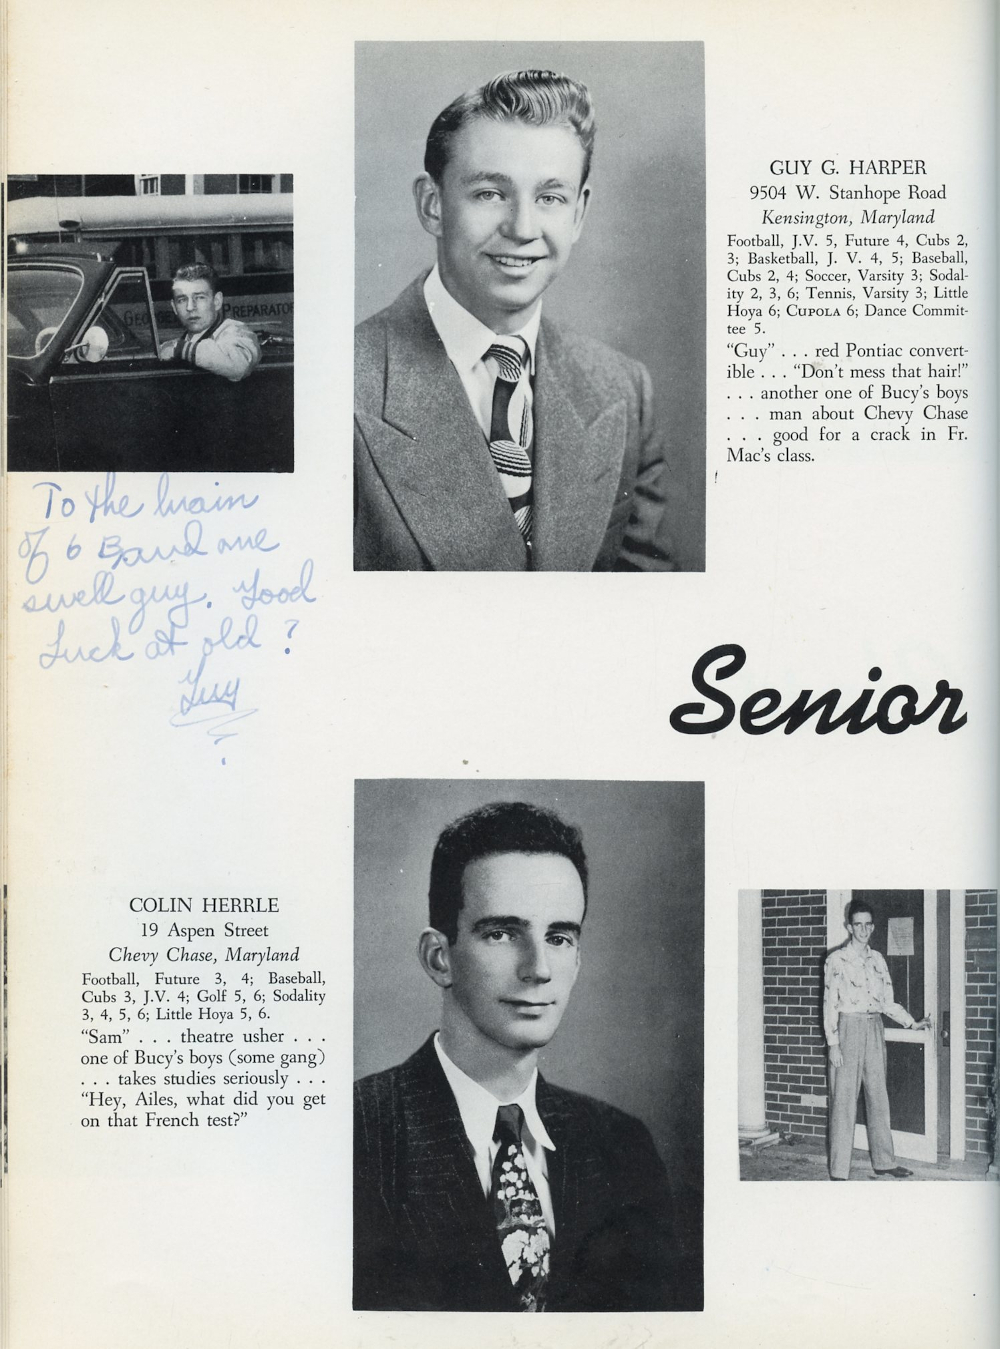 GUY G. HARPER
9504 W. Stanhope Road
Kensington, Maryland
Football, J.V. 5, Future 4, Cubs 2,
3; Basketball, J. V. 4, 5; Baseball,
Cubs 2, 4; Soccer, Varsity 3; Sodal-
ity 2, 3, 6; Tennis, Varsity 3; Little
Hoya 6; CUPOLA 6; Dance Commit-
tee 5.
“Guy” . . . red Pontiac convert-
ible . . . “Don’t mess that hair!”
. . . another one of Bucy’s boys
. . . man about Chevy Chase
. . . good for a crack in Fr.
Mac’s class.
PREPARATO
To the brain
of 6 B and one
swell guy. Good
Luck at old ?
Guy
Senior
COLIN HERRLE
19 Aspen Street
Chevy Chase, Maryland
Football, Future 3, 4; Baseball,
Cubs 3, J.V. 4; Golf 5, 6; Sodality
3, 4, 5, 6; Little Hoya 5, 6.
“Sam” . . . theatre usher . . .
one of Bucy’s boys (some gang)
. . . takes studies seriously . . .
“Hey, Ailes, what did you get
on that French test?”